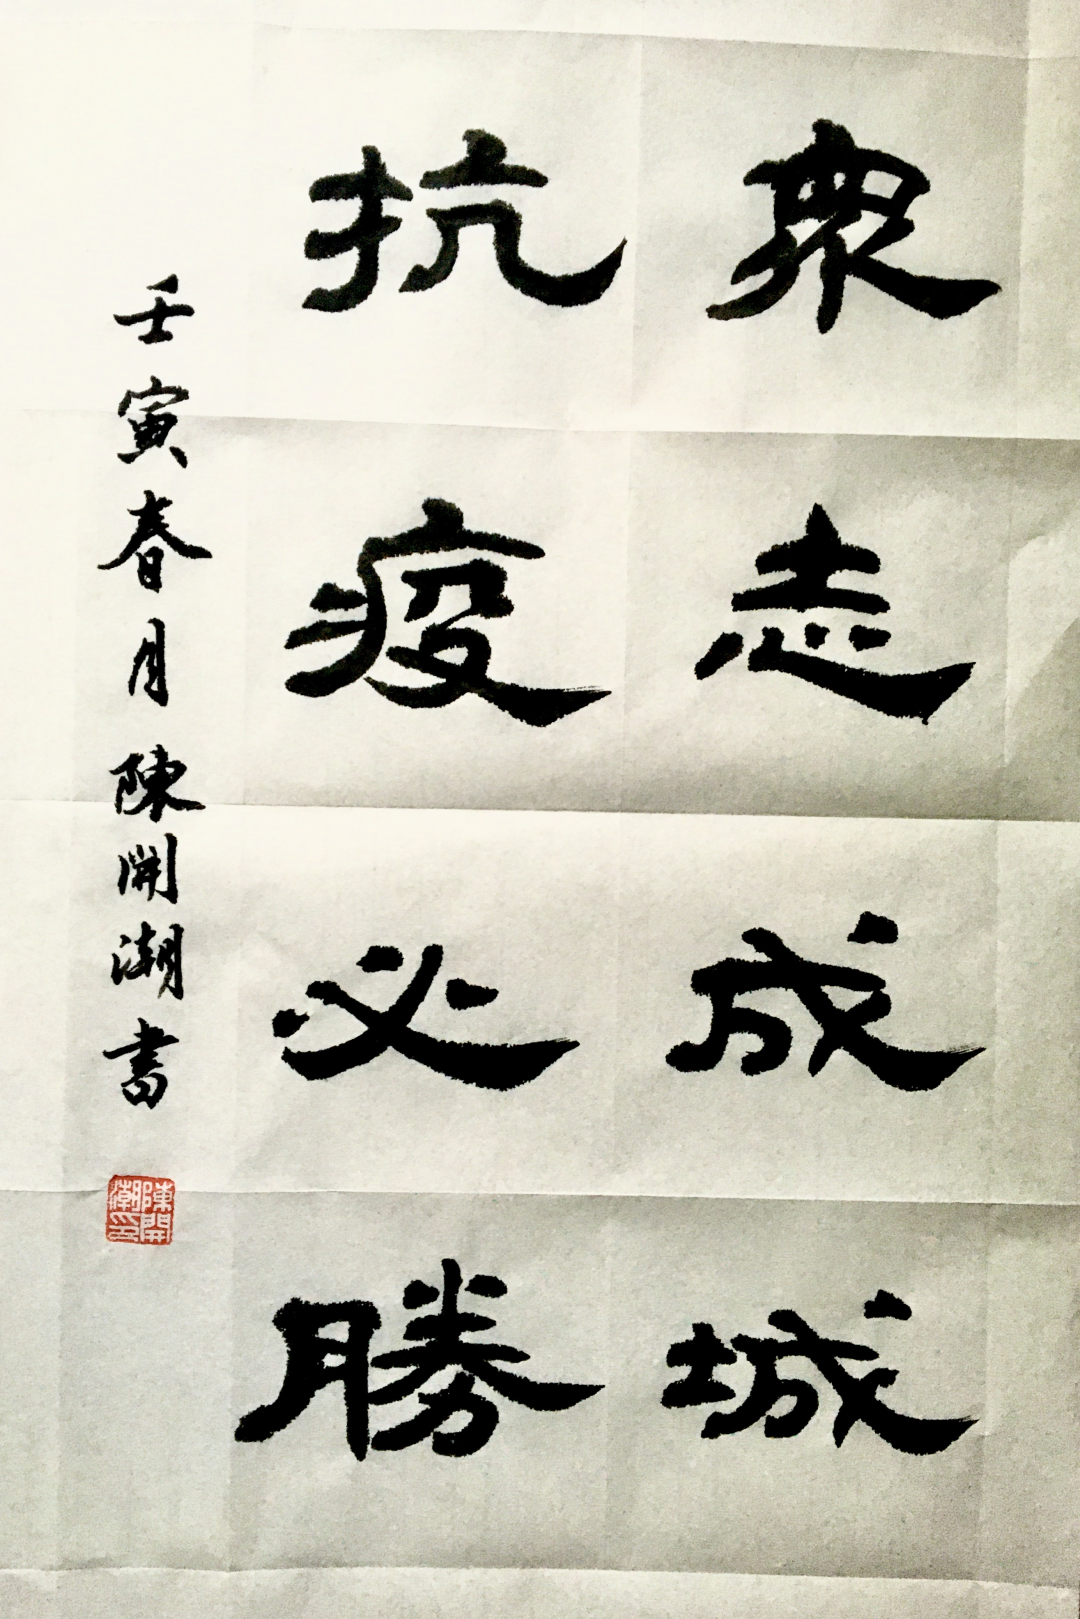 眾志成城
抗疫必勝
壬寅春月陳開潮書
陳開潮印